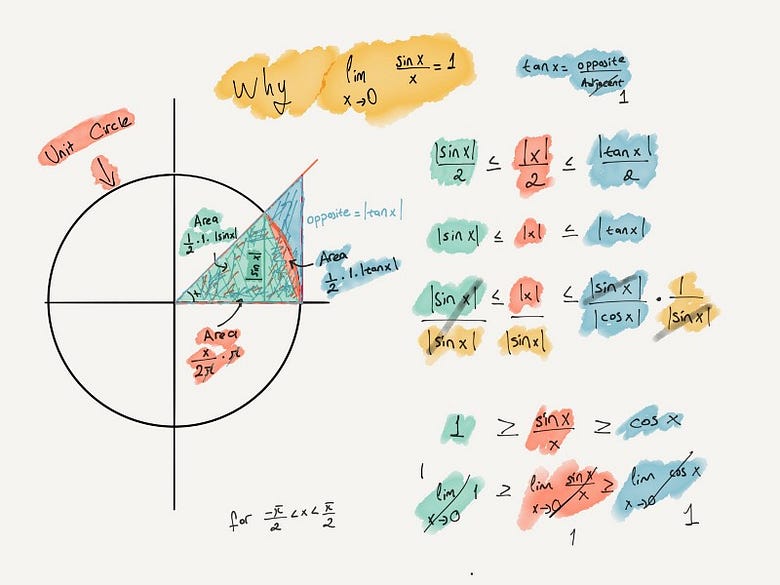 Why lim x→0 sin x / x = 1
tan x = opposite / Adjacent
1
Unit Circle
Area
1/2 · 1 · |sin x|
opposite = |tan x|
|sin x|
x
Area
1/2 · 1 · |tan x|
Area
x/2π · π
for -π/2 < x < π/2
|sin x|/2 ≤ |x|/2 ≤ |tan x|/2
|sin x| ≤ |x| ≤ |tan x|
|sin x|/|sin x| ≤ |x|/|sin x| ≤ |sin x|/|cos x| · 1/|sin x|
1 ≥ sin x / x ≥ cos x
1
lim x→0 1 ≥ lim x→0 sin x / x ≥ lim x→0 cos x
1
1